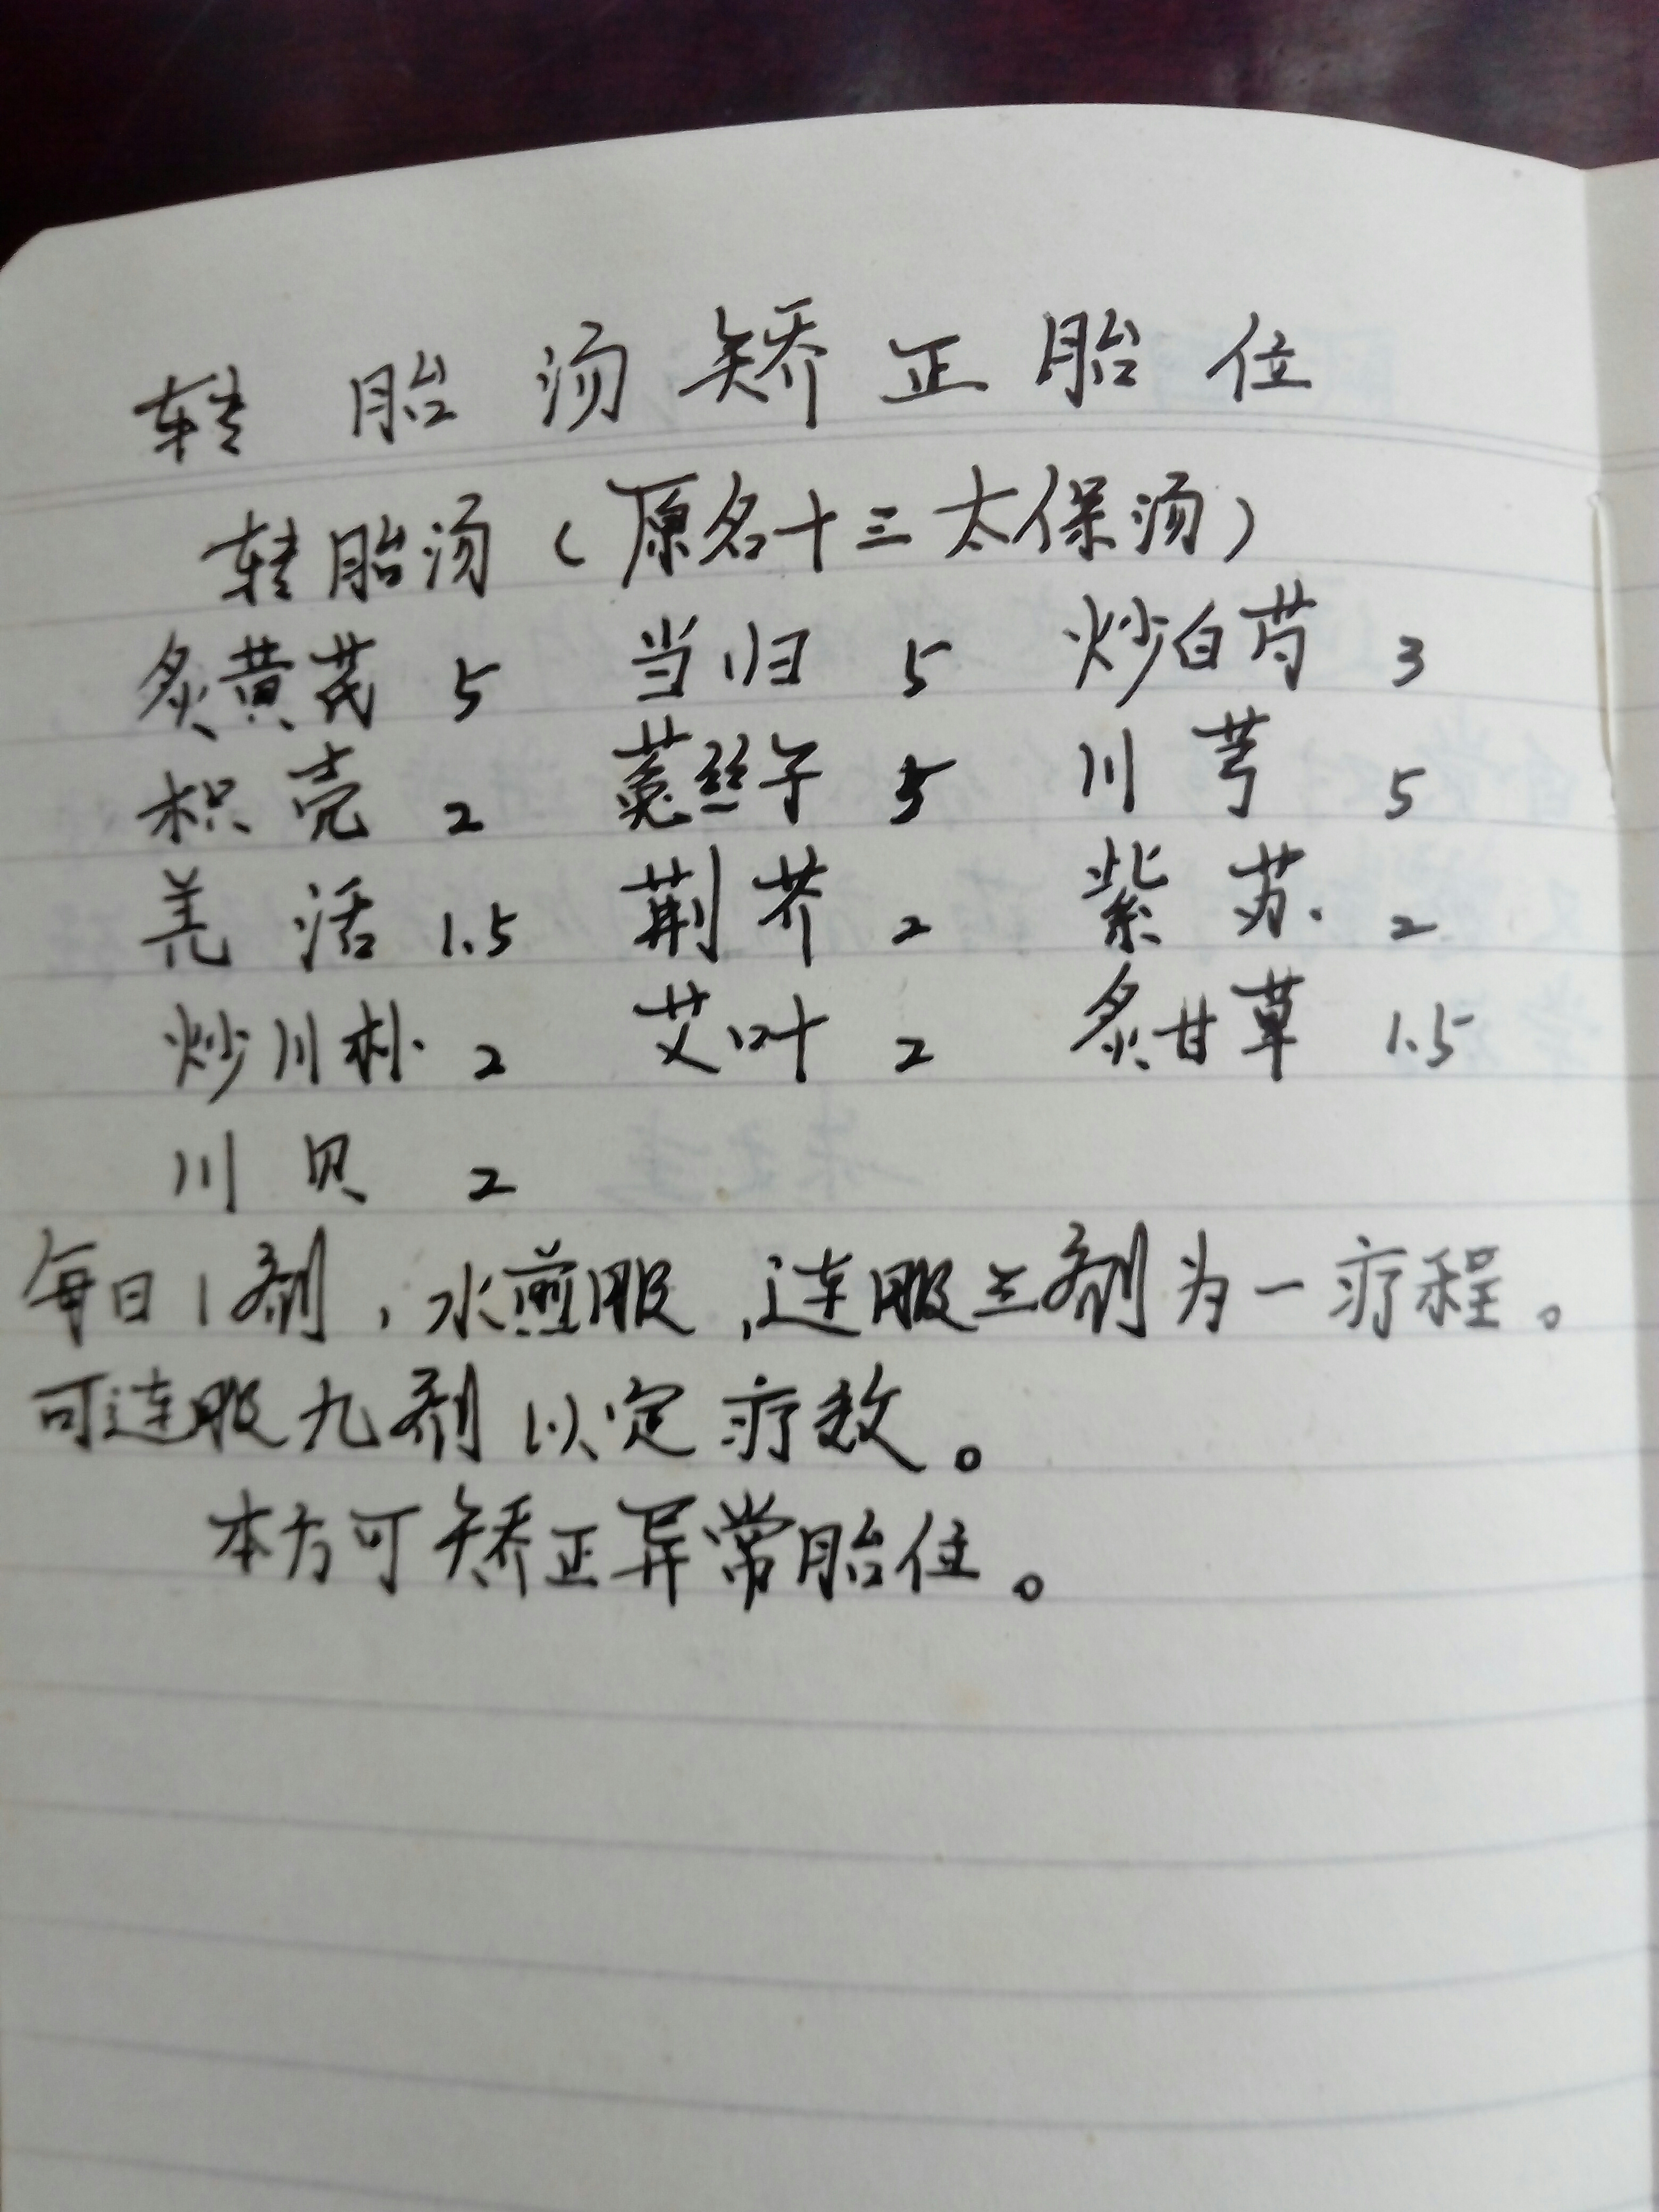 转胎汤矫正胎位
转胎汤(原名十三太保汤)
炙黄芪 5 当归 5 炒白芍 3
枳壳 2 菟丝子 5 川芎 5
羌活 1.5 荆芥 2 紫苏 2
炒川朴 2 艾叶 2 炙甘草 1.5
川贝 2
每日1剂,水煎服,连服三剂为一疗程。
可连服九剂以定疗效。
本方可矫正异常胎位。